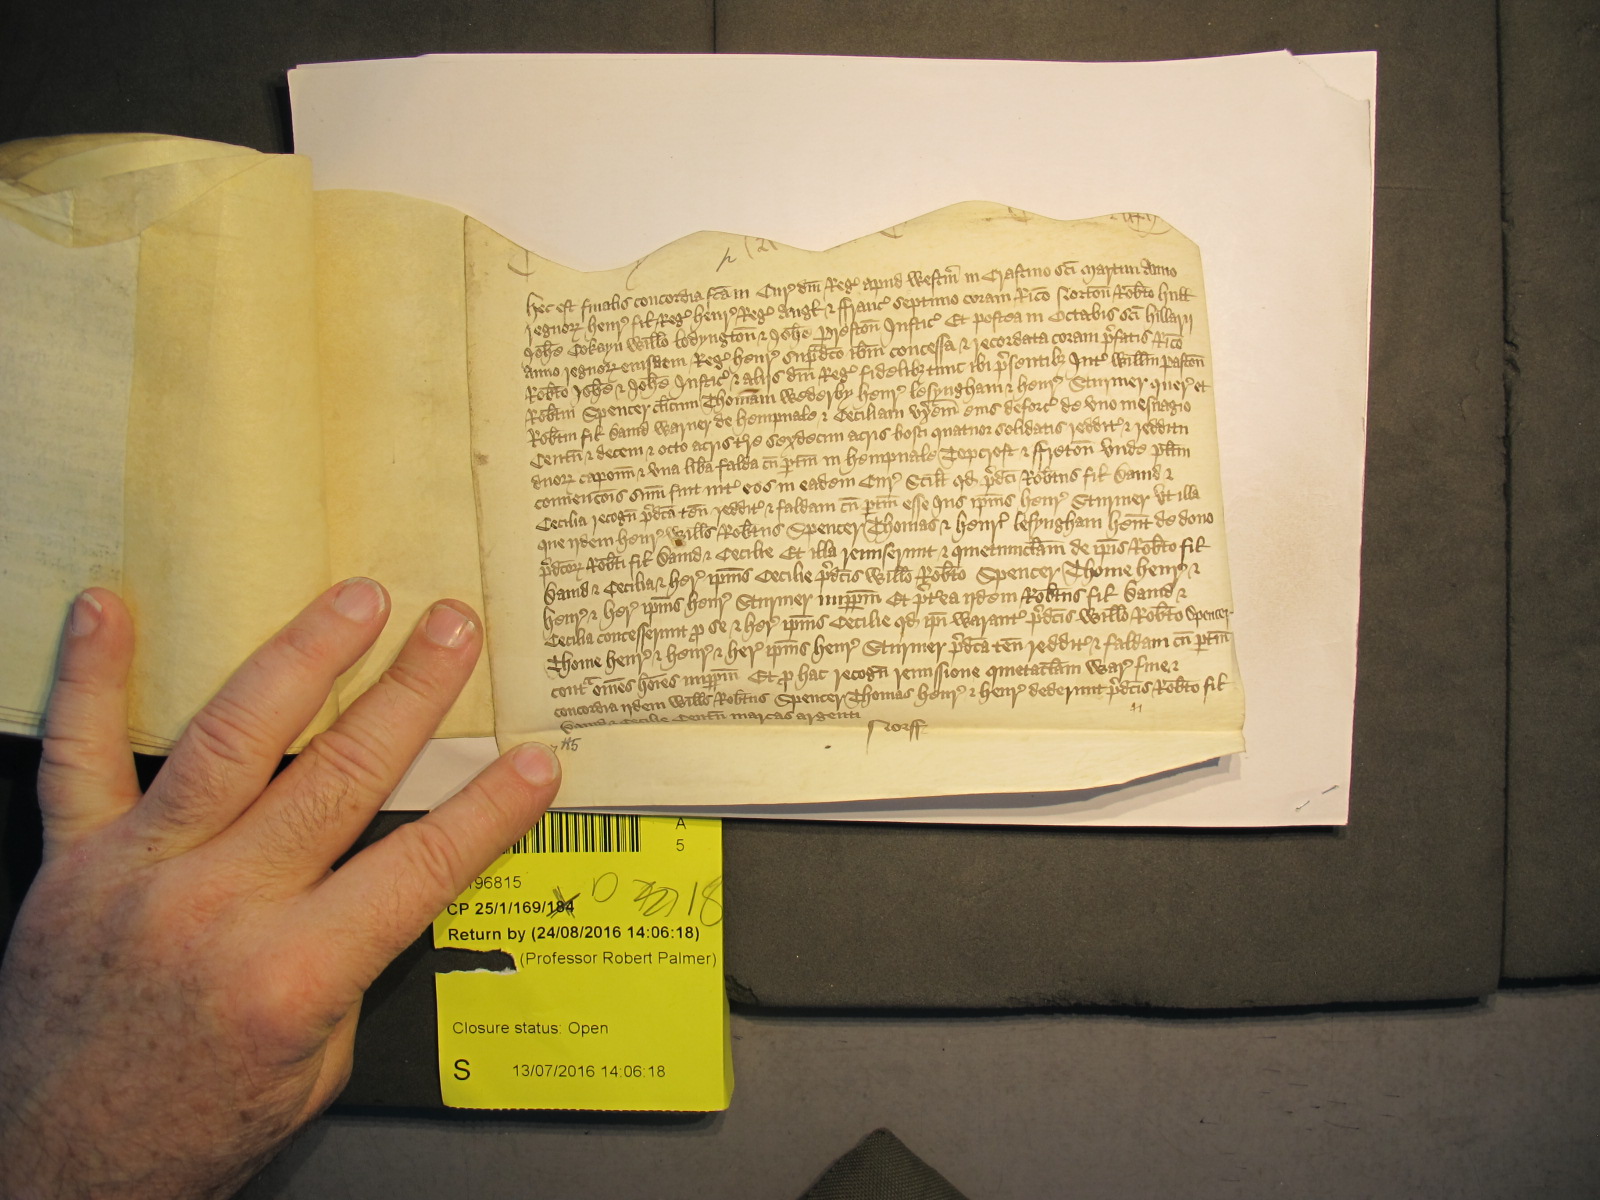 Hec est finalis concordia fca in Cur dni Reg apud Westm in Crastino sci Martini Anno
regnor Henr fil Reg Henr Reg Angl & Franc septimo coram Rico Norton Robto Hull
Johe Cokayn Willo Lodyngton & Johe Preston Justic Et postea in Octabis sci Hillarii
Anno regnor eiusdem Reg Henr supradco ibm concessa & recordata coram prfatis Rico
Robto Johe & Johe Justic & aliis dni Reg fidelibz tunc ibi prsentibz Int Willm Paston
Robtm Spencer clicum Thomam Wederby Henr Lesyngham & Henr Sturmer quer et
Robtm fil David Warner de Hempnale & Ceciliam uxem eius deforc de uno mesuagio
Centu & decem & octo acris tre sexdecim acris bosci quatuor solidatis reddit & redditu
duor caponu & una liba falda cu ptin in Hempnale Topcroft & Freton unde plitm
convencois sum fuit int eos in eadem Cur Scilt qd prdci Robtus fil David &
Cecilia recogn prdca ten reddit & faldam cu ptin esse Jus ipius Henr Sturmer Ut illa
que iidem Henr Wills Robtus Spencer Thomas & Henr Lesyngham hent de dono
prdcor Robti fil David & Cecilie Et illa remiserunt & quietumclam de ipis Robto fil
David & Cecilia & her ipius Cecilie prdcis Willo Robto Spencer Thome Henr &
Henr & her ipius Henr Sturmer imppm Et prtea iidem Robtus fil David &
Cecilia concesserunt p se & her ipius Cecilie qd ipi Warant prdcis Willo Robto Spencer
Thome Henr & Henr & her ipius Henr Sturmer prdca ten reddit & faldam cu ptin
cont omes hoies imppm Et p hac recogn remissione quietaclam War fine &
concordia iidem Wills Robtus Spencer Thomas Henr & Henr dederunt prdcis Robto fil
David & Cecilie Centu marcas argenti
Norff
41
A
5
96815
CP 25/1/169/184
Return by (24/08/2016 14:06:18)
(Professor Robert Palmer)
Closure status: Open
S 13/07/2016 14:06:18